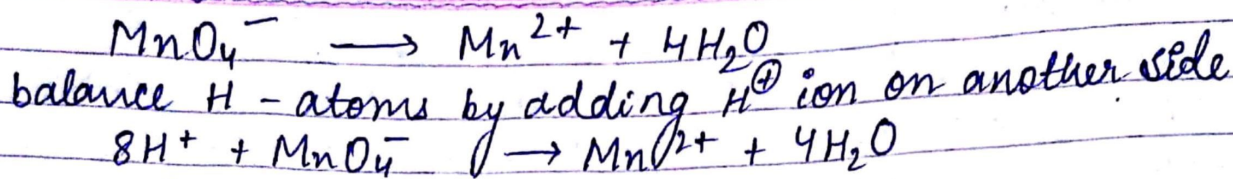 MnO₄⁻ ⟶ Mn²⁺ + 4H₂O
balance H - atoms by adding H⊕ ion on another side
8H⁺ + MnO₄⁻ ⟶ Mn²⁺ + 4H₂O